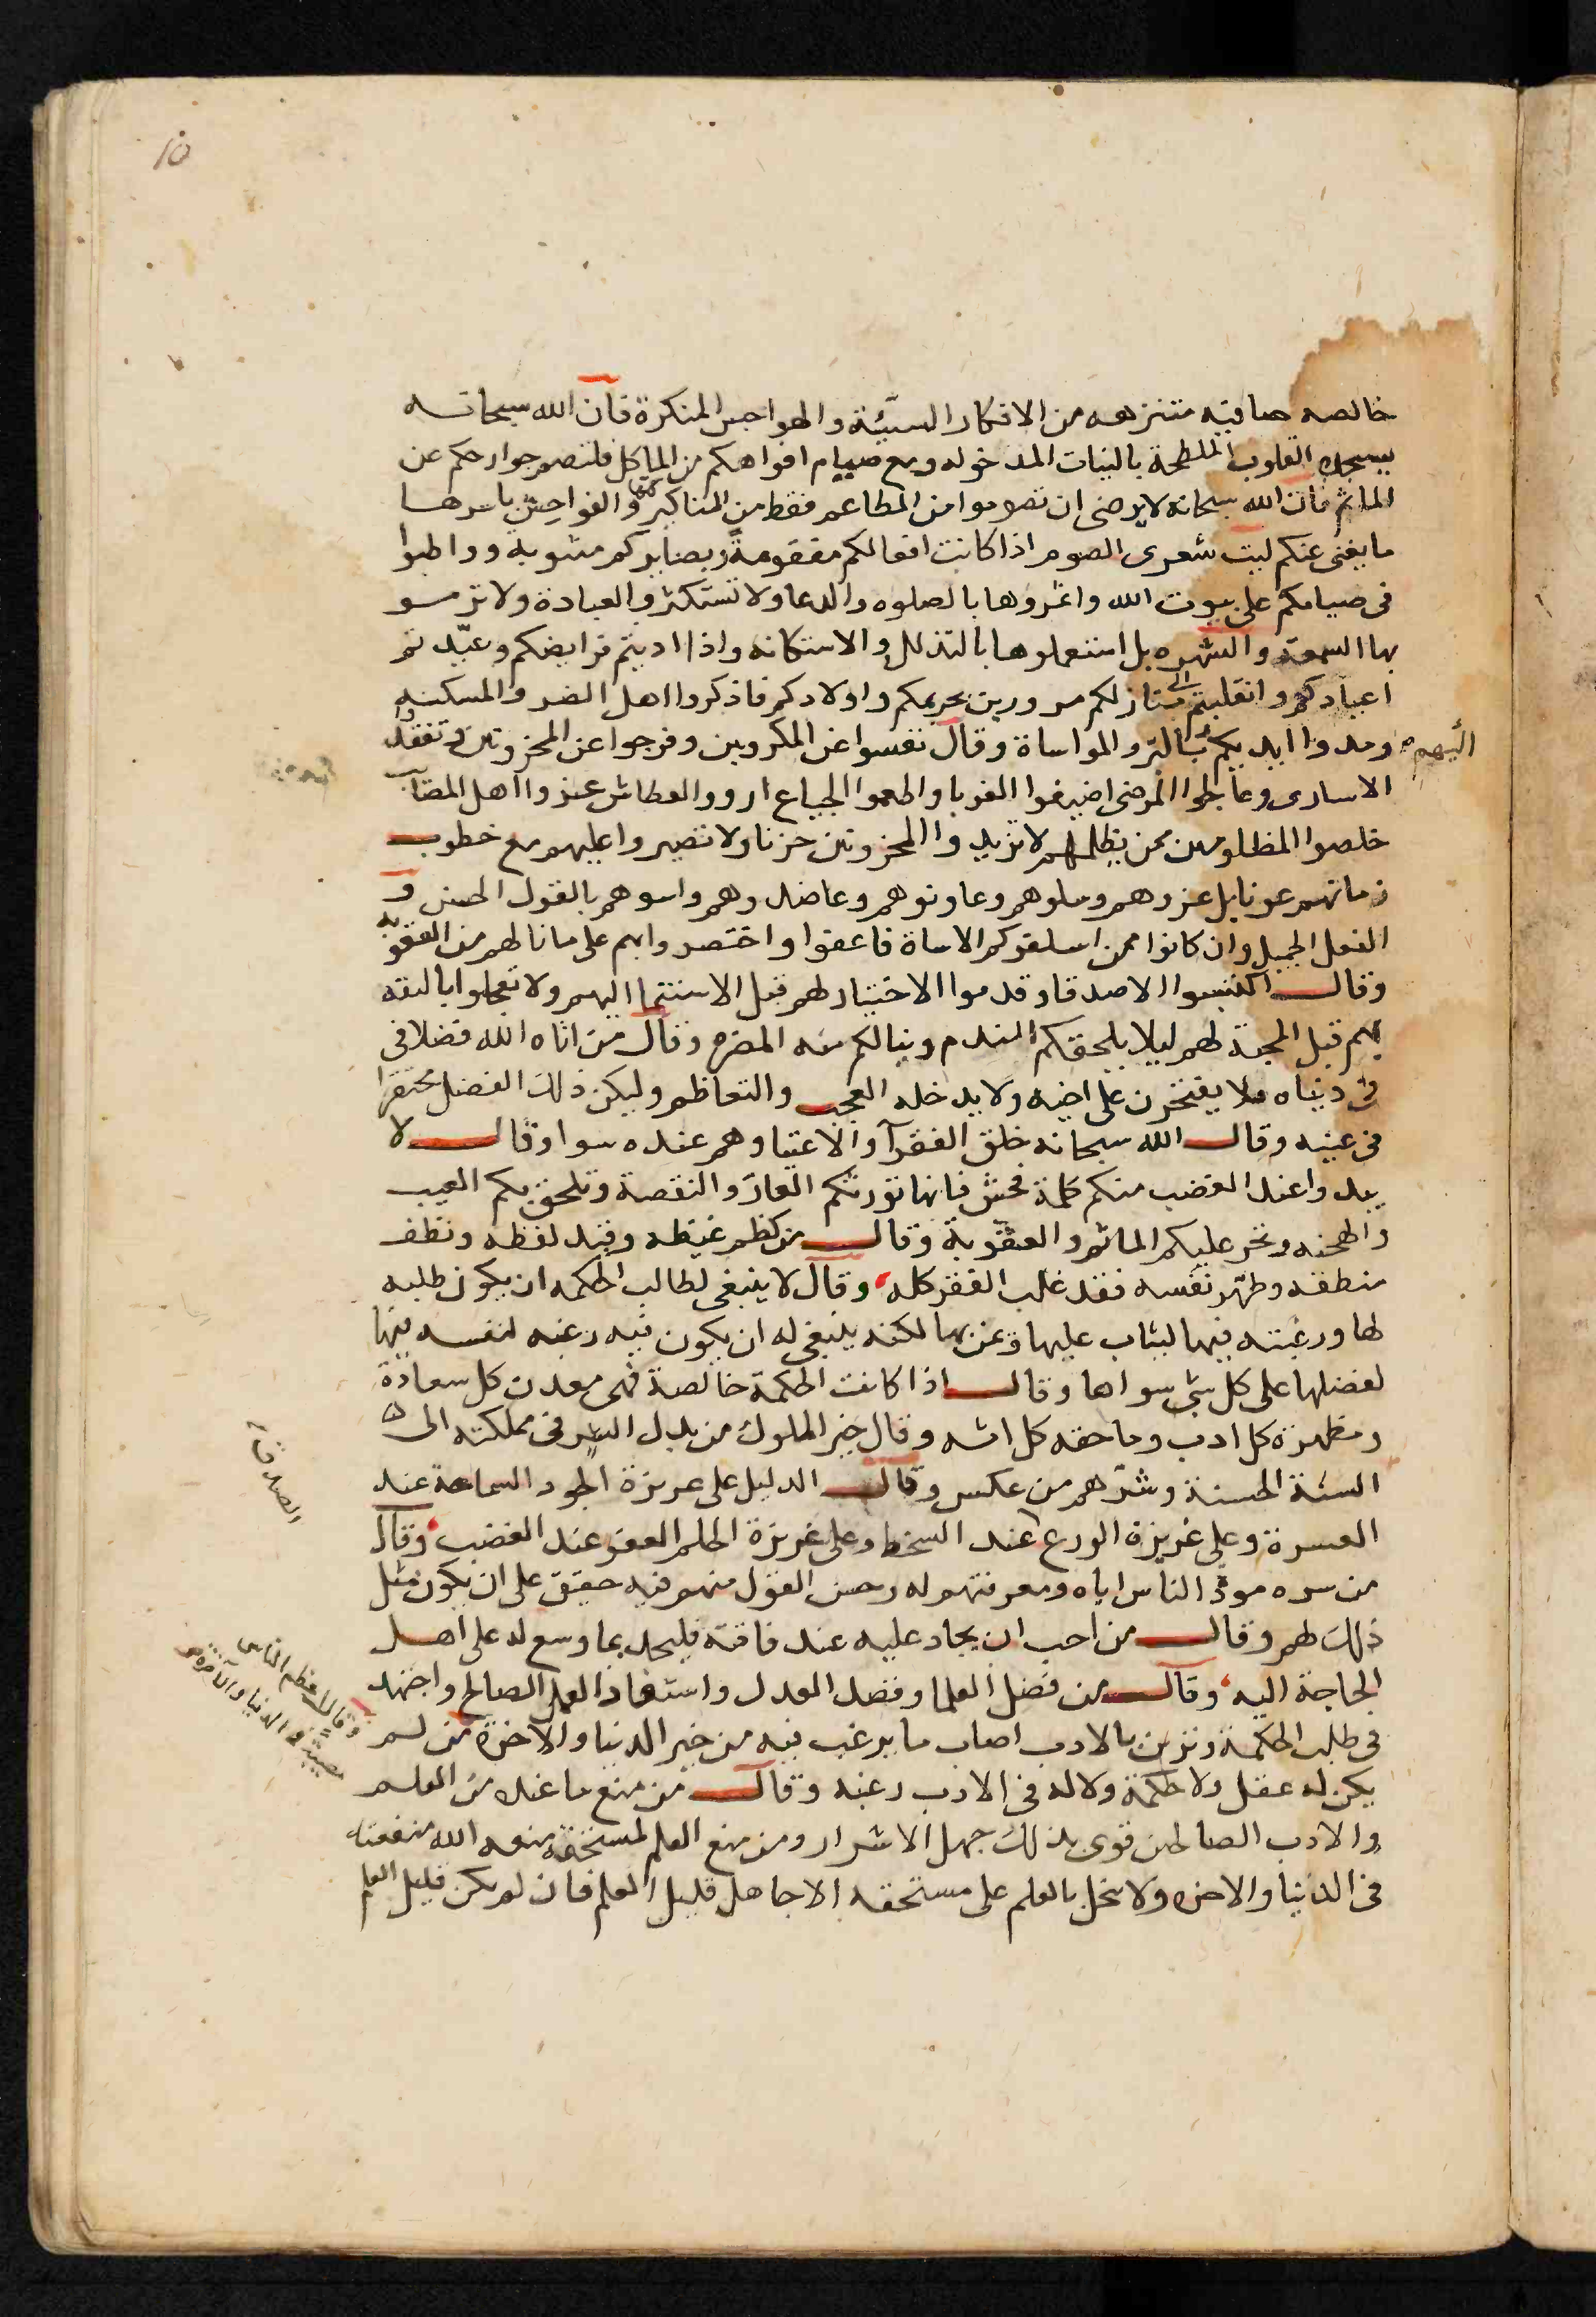 ١٥
خالصه صافيه متنزهه من الافكار السيّئة والهواجس المنكرة فان الله سبحانه
القلوب الملطخة بالنيات المدخوله ومع صيام افواهكم من الماكل فلتصم جوارحكم عن
الماثم فان الله سبحانه لا يرضى ان تصوموا من المطاعم فقط من المناكير كلها والفواحش باسرها
ما يغنى عنكم ليت شعرى الصوم اذا كانت افعالكم مفقومةً وبصايركم مشوبة وواظبوا
فى صيامكم على بيوت الله واغروها بالصلوه والدعا ولا تستكثروا العبادة ولا ترموا
بها السمعة والشهره بل استعملوها بالتذلل والاستكانه واذا اديتم فرايضكم وعيّدتم
اعيادكم وانقلبتم الى منازلكم مسرورين بحريمكم واولادكم فاذكروا اهل الضر والمسكنه
ومدوا اليهم ايديكم بالبّر والمواساة وقال نفسوا عن المكروبين وفرجوا عن المحزونين وتفقدوا
الاسارى وعالجوا المرضى اضيفوا الغربا واطعموا الجياع ارووا العطاش عزوا اهل المصايب
خلصوا المظلومين ممن يظلمهم لا تزيدوا المحزونين حزنا ولا تصيروا عليهم مع خطوب
زمانهم عونا بل عزوهم وسلوهم وعاونوهم وعاضدوهم واسوهم بالقول الحسن و
الفعل الجميل وان كانوا ممن اسلفوكم الاساة فاعفوا واقتصروا بهم على ما نالهم من العقوبه
وقال اكتسبوا الاصدقا وقدموا الاختبار لهم قبل الاستنما اليهم ولا تعجلوا بالثقه
بهم قبل المحبة لهم ليلا يلحقكم الندم وينالكم منه المضره وقال من اتاه الله فضلا فى
فى دنياه فلا يفتخرن على اخيه ولا يدخله العجب والتعاظم وليكن ذلك الفضل محتقرا
فى عينيه وقال الله سبحانه خلق الفقرآ والاغنيا وهم عنده سوا وقال لا
يبدوا عند الغضب منكم كلمة فحش فانها تورثكم العار والنقصة وتلحق بكم العيب
والهجنه وتجر عليكم الماثم والعقوبة وقال من كظم غيظه وقيد لفظه ونظف
منطقه وطهّر نفسه فقد غلب الفقر كله وقال لا ينبغى لطالب الحكمه ان يكون طلبه
لها ورغبته فيها لثياب عليها وعن بها لكنه ينبغى له ان يكون فيه رغبه لنفسه فيها
لفضلها على كل شى سواها وقال اذا كانت الحكمة خالصة فهى معدن كل سعادة
ومظهرة كل ادب وماحقه كل اثم وقال خير الملوك من بدل السر فى مملكته الى
السنة الحسنة وشرهم من عكس وقال الدليل على غريزة الجود السماحة عند
العسرة وعلى غريزة الورع الصدق عند السخط وعلى غريزة الحلم العفو عند الغضب وقال
من سره مودّة الناس اياه ومعونتهم له وحسن القول منهم فيه حقيق على ان يكون مثل
ذلك لهم وقال من احب ان يجاد عليه عند فاقته فليجد بما وسع له على اهل
الحاجة اليه وقال من فضل العلما وفضل العدل واستفاد العمل الصالح واجتهد
فى طلب الحكمة وتزين بالادب اصاب ما يرغب فيه من خير الدنيا والاخره من لم
وقال اعظم الناس مصيبة فى الدنيا والآخره
يكن له عقل ولا حكمة ولا له فى الادب رغبه وقال من منع ما عنده من العلم
والادب الصالحين قوى بذلك جهل الاشرار ومن منع العلم لمستحقه منعه الله منفعته
فى الدنيا والاخره ولا يبخل بالعلم على مستحقه الا جاهل قليل العلم فان لم يكن قليل العلم